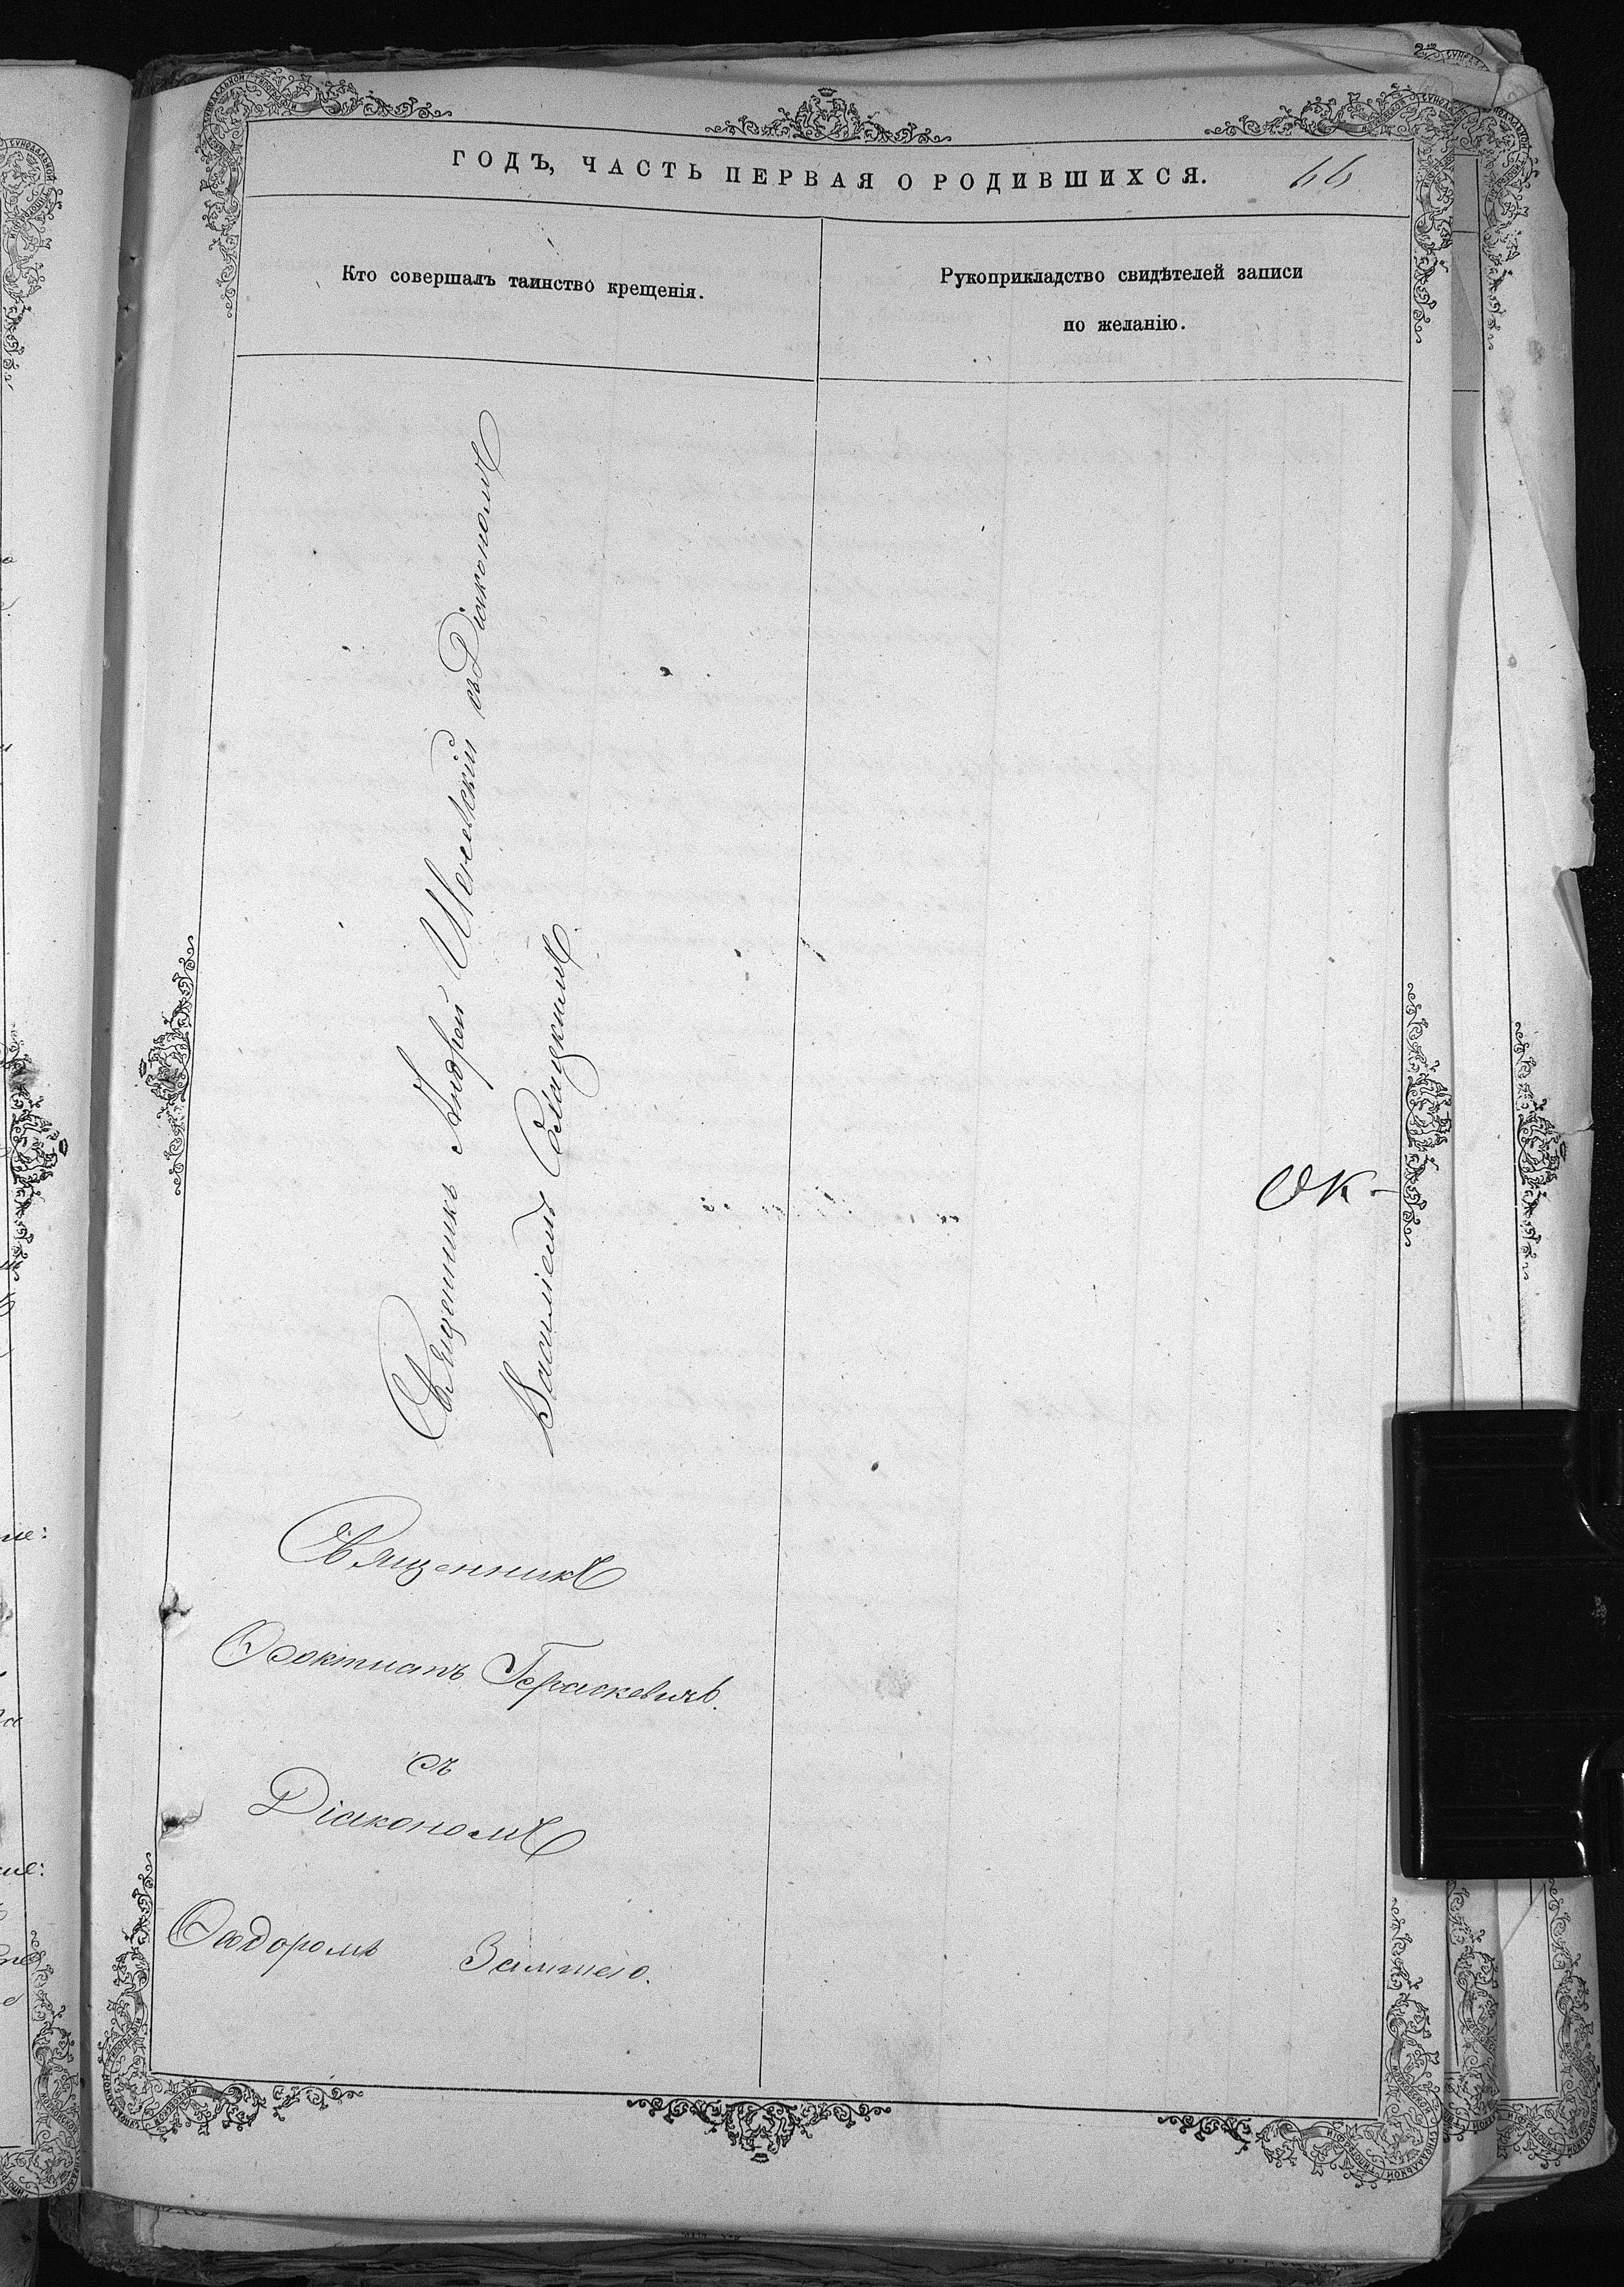 ГОДЪ, ЧАСТЬ ПЕРВАЯ О РОДИВШИХСЯ. 66
Кто совершалъ таинство крещенія.
Рукоприкладство свидѣтелей записи
по желанію.
Священникъ Андрей Шеневскій съ Діакономъ
Василіемъ
Священникъ
Ѳеоктистъ Гераскевичъ.
съ
Діакономъ
Ѳеодоромъ
ОК-